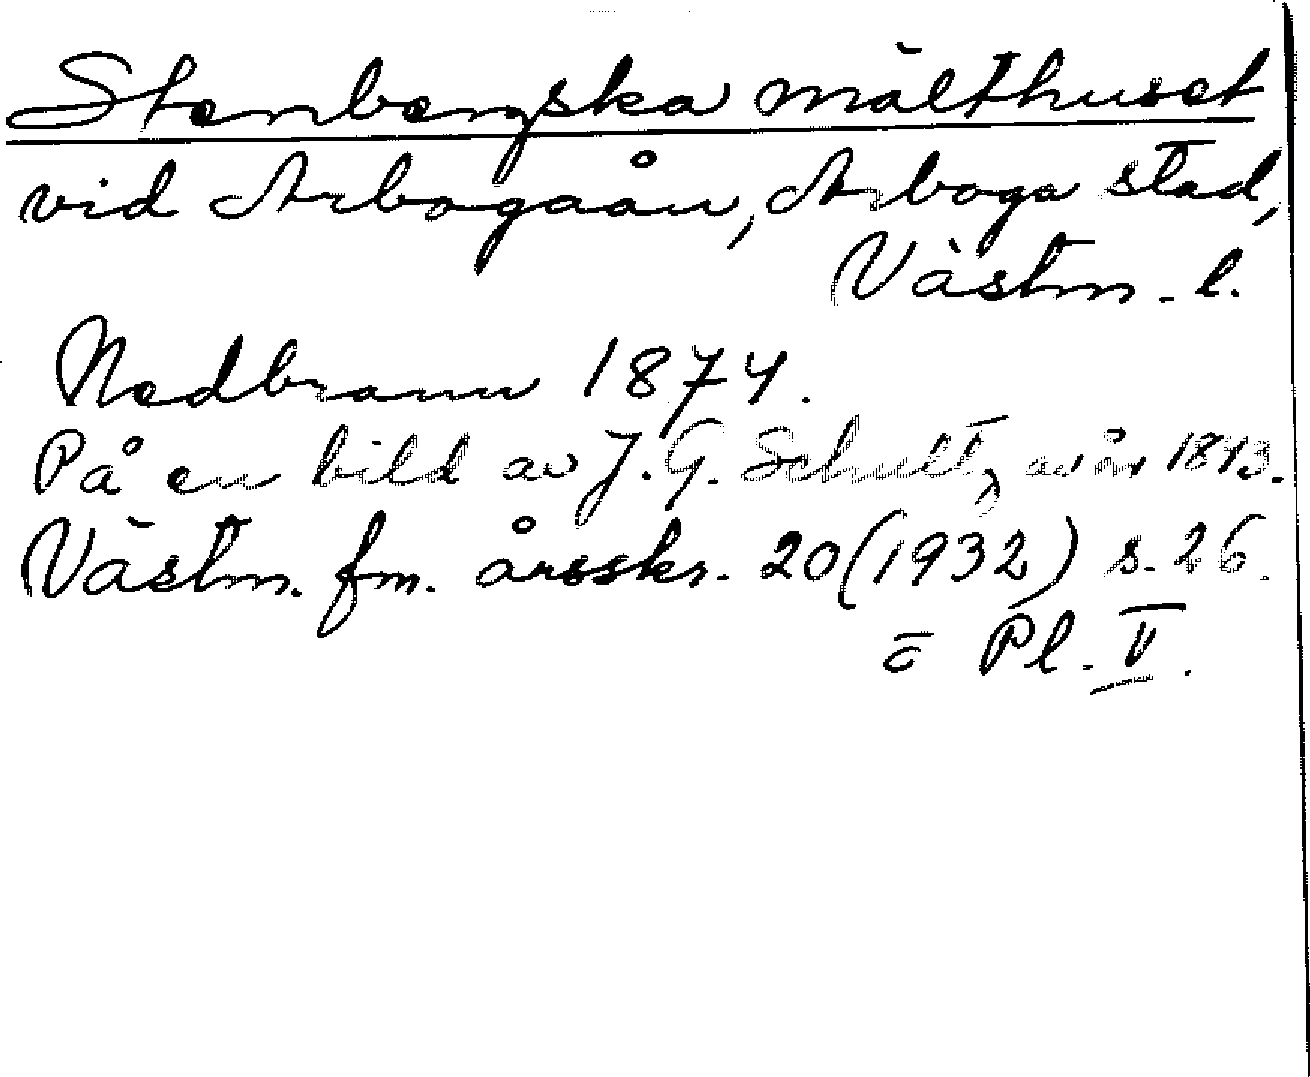 Stenbergska mälthuset
vid Arbogaån, Arboga stad,
Västm. l.
Nedbrann 1874.
På en bild av J. G. Schultz av år 1843.
Västm. fm. årsskr. 20 (1932) s. 26.
o Pl. V.